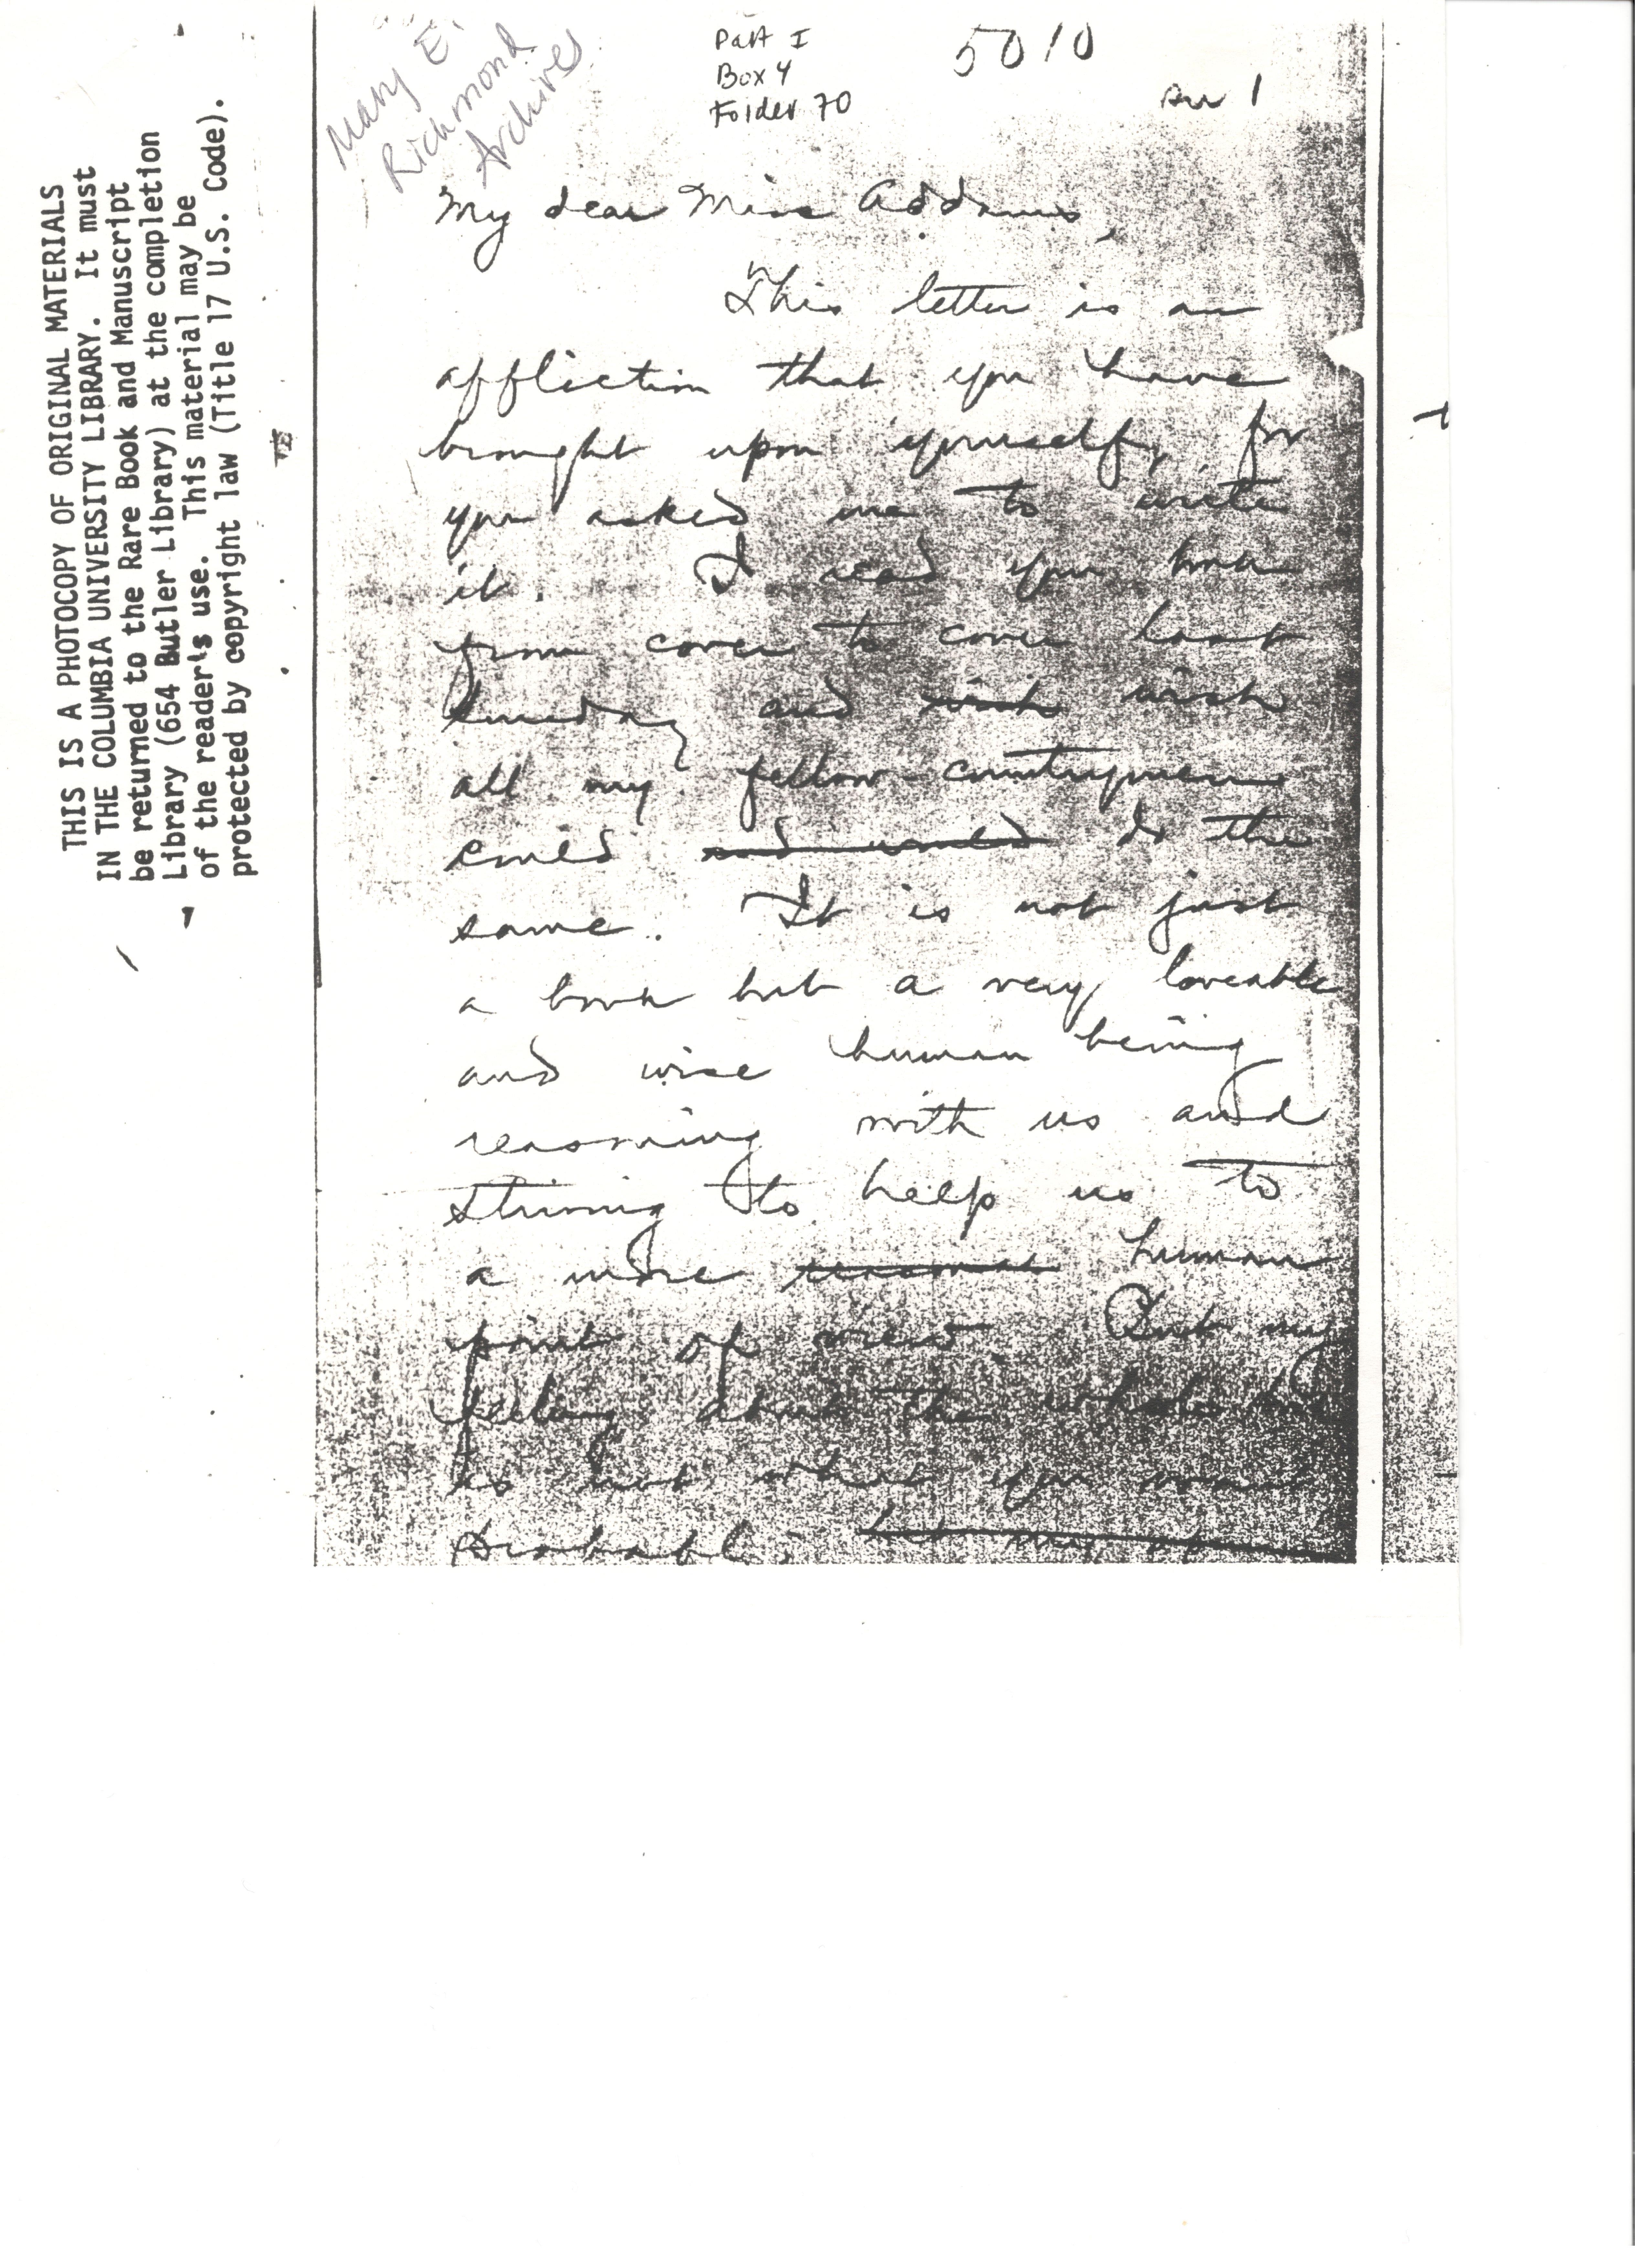 Mary E.
Richmond
Archives
Part I
Box 4
Folder 70
5010
1
THIS IS A PHOTOCOPY OF ORIGINAL MATERIALS
IN THE COLUMBIA UNIVERSITY LIBRARY. It must
be returned to the Rare Book and Manuscript
Library (654 Butler Library) at the completion
of the reader's use. This material may be
protected by copyright law (Title 17 U.S. Code).
My dear Miss Addams,
This letter is an
affliction that you have
brought upon yourself, for
you asked me to write
it. I read your book
from cover to cover last
Sunday and wish wish
all my fellow-countrymen
could and would do the
same. It is not just
a book but a very loveable
and wise human being
reasoning with us and
striving to help us to
a more human
point of view. But my
feeling about the whole
is not what you
probably